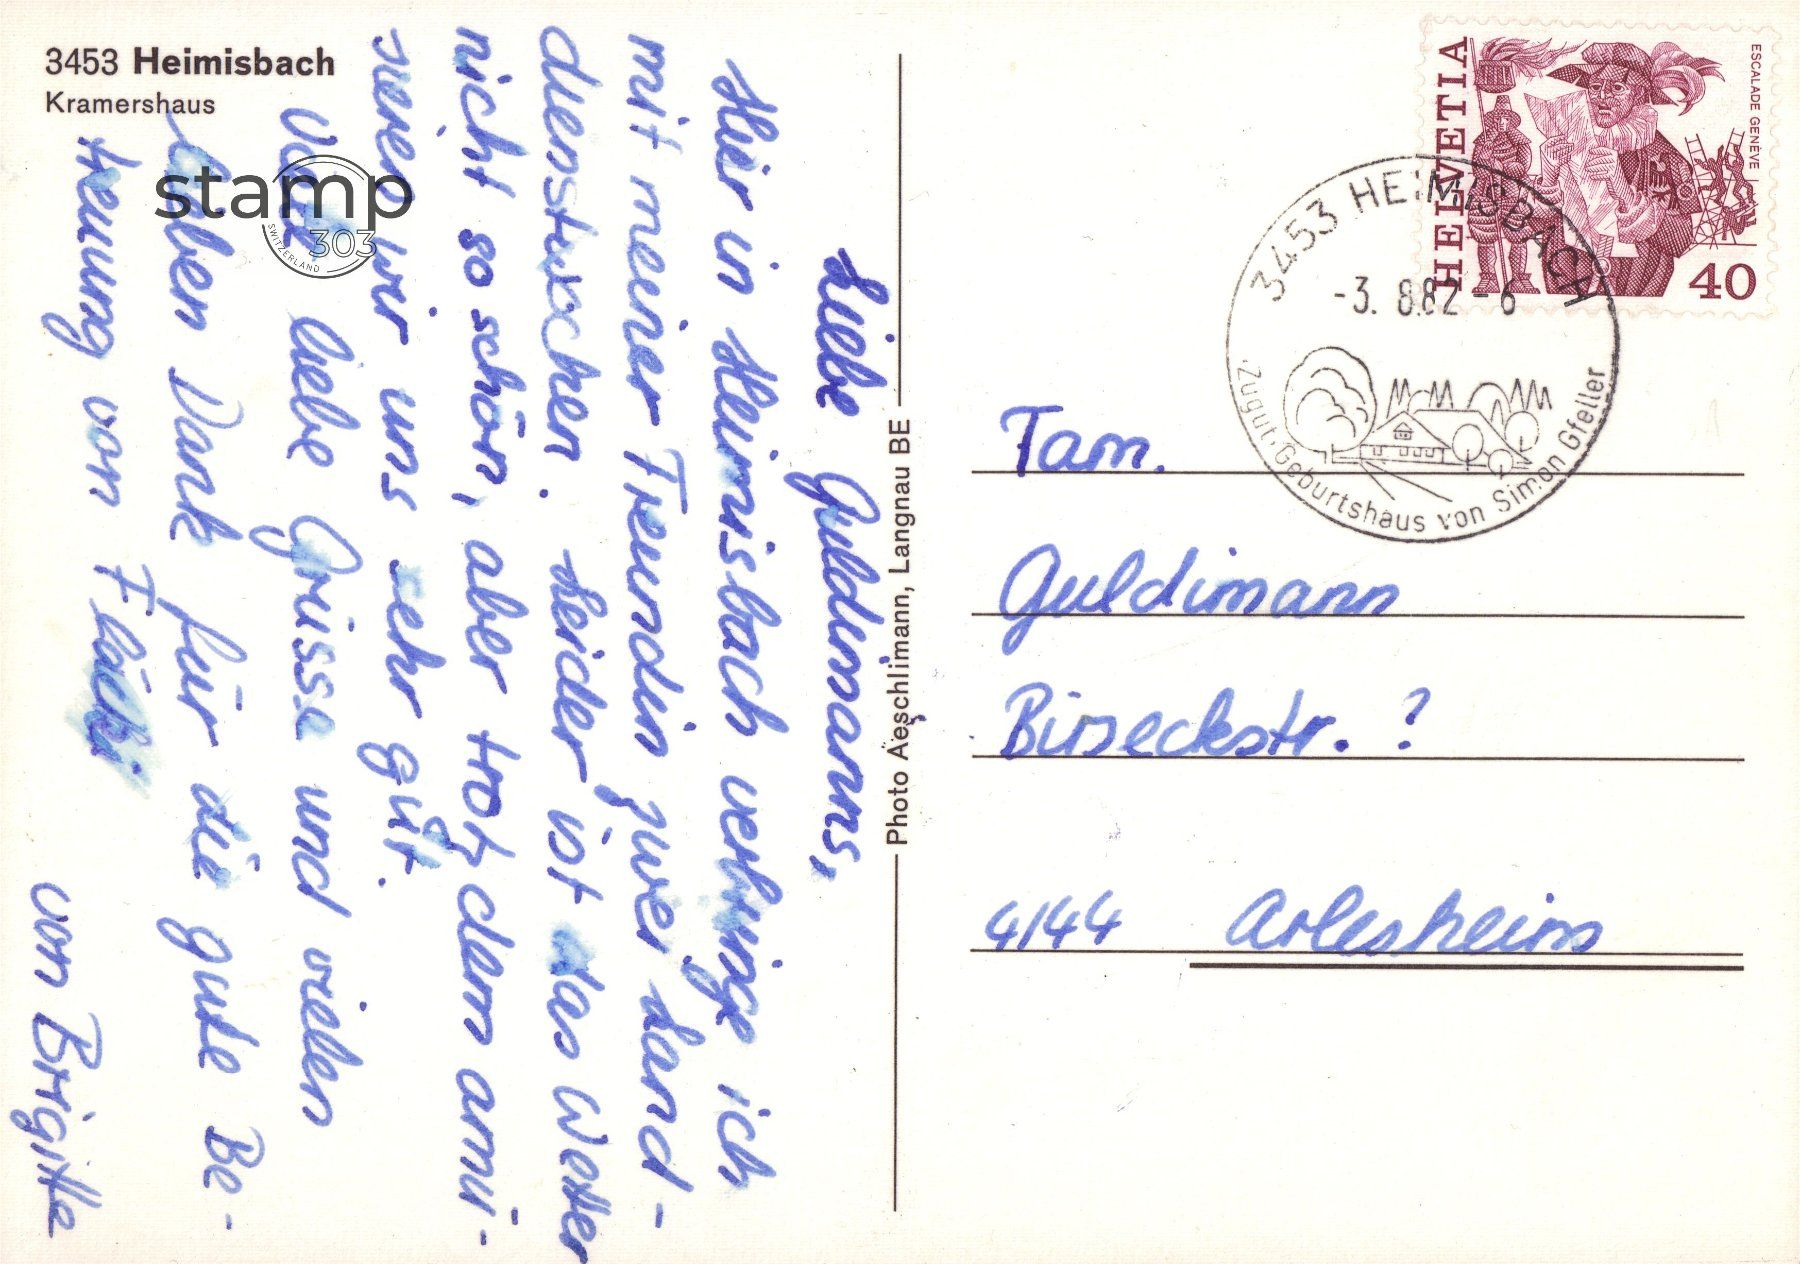 3453 Heimisbach
Kramershaus
Liebe Guldimanns,
Hier in Heimisbach verbringe ich
mit meiner Freundin zwei Land-
dienstwochen. Leider ist das Wetter
nicht so schön, aber trotzdem amü-
sieren wir uns sehr gut.
Viele liebe Grüsse und vielen
lieben Dank für die gute Be-
treuung von Fläcki
von Brigitte
Photo Aeschlimann, Langnau BE
HELVETIA
ESCALADE GENÈVE
40
3453 HEIMISBACH
-3. 8.82-6
Zugut: Geburtshaus von Simon Gfeller
Fam.
Guldimann
Birseckstr. ?
4144 Arlesheim
stamp
303
SWITZERLAND